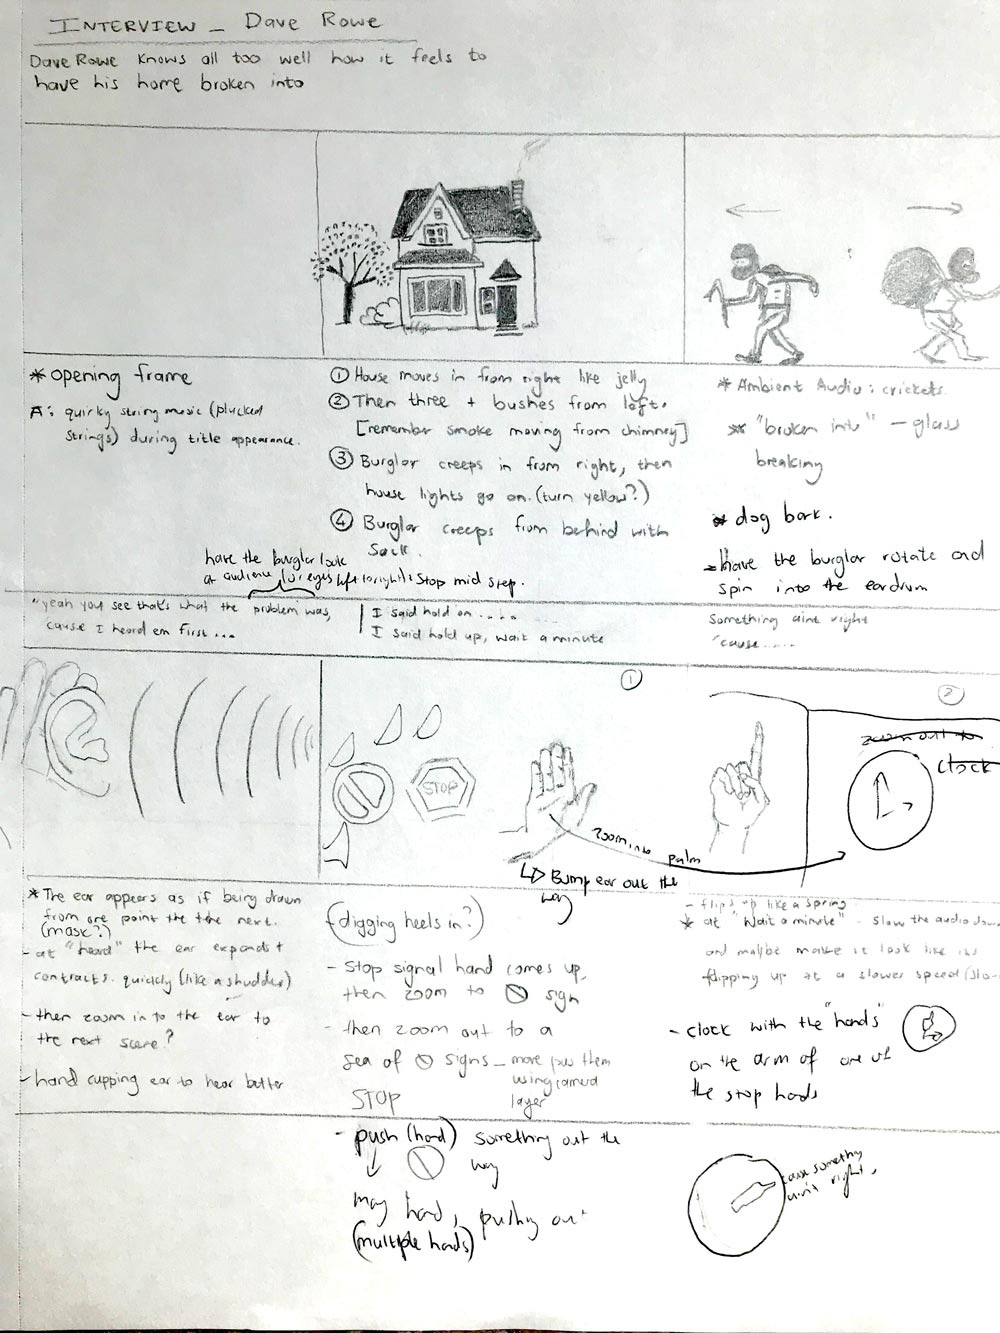 INTERVIEW - Dave Rowe
Dave Rowe knows all too well how it feels to
have his home broken into
* Opening frame
A: quirky string music (plucked
strings) during title appearance.
① House moves in from right like jelly
② Then three + bushes from left.
[remember smoke moving from chimney]
③ Burglar creeps in from right, then
house lights go on. (turn yellow?)
④ Burglar creeps from behind with
Sack.
have the burglar look
at audience (or eyes left to right) & Stop mid step.
* Ambient Audio: crickets.
** "broken into" - glass
breaking
* dog bark.
- have the burglar rotate and
spin into the eardrum
"yeah you see that's what the problem was,
cause I heard em first...
I said hold on......
I said hold up, wait a minute
Something aint right
"cause.....
①
②
STOP
zoom into palm
↳ Bump ear out the
way
zoom out to
clock
* The ear appears as if being drawn
from one point the the next.
(mask?)
- at "heard" the ear expands +
contracts quickly (like a shudder)
- then zoom in to the ear to
the next scene?
- hand cupping ear to hear better
(digging heels in?)
- Stop signal hand comes up,
then zoom to sign
- then zoom out to a
sea of signs - move pass them
using camera
layer
STOP
- push (hand) something out the
way
may hand, pushing out
(multiple hands)
- flips up like a spring.
* at "Wait a minute" - slow the audio down
and maybe make it look like its
flipping up at a slower speed (slo-
- clock with the "hands"
on the arm of one of
the stop hands
cause something
aint right.